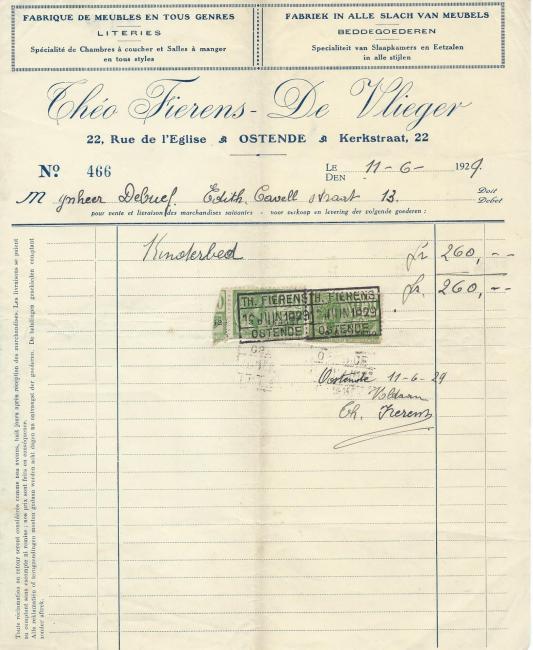 FABRIQUE DE MEUBLES EN TOUS GENRES
LITERIES
Spécialité de Chambres à coucher et Salles à manger
en tous styles
FABRIEK IN ALLE SLACH VAN MEUBELS
BEDDEGOEDEREN
Specialiteit van Slaapkamers en Eetzalen
in alle stijlen
Théo Fierens - De Vlieger
22, Rue de l'Eglise OSTENDE Kerkstraat, 22
No. 466
LE
DEN 11-6- 1929.
Mynheer Debuef. Edith Cavell straat 13. Doit
Debet
pour vente et livraison des marchandises suivantes - voor verkoop en levering der volgende goederen :
Kinderbed fr 260,--
fr. 260,--
TH. FIERENS TH. FIERENS
JUIN 1929 JUIN 1929
OSTENDE OSTENDE
Oostende 11-6-29
Voldaan
Th. Fierens
Toute réclamation ou retour seront considérés comme non avenus, huit jours après réception des marchandises. Les livraisons se paient
au comptant sans escompte ni remise ; nos prix sont faits en conséquence.
Alle reklamatiën of terugzendingen moeten gedaan worden acht dagen na ontvangst der goederen. De betalingen geschieden comptant
zonder aftrek.